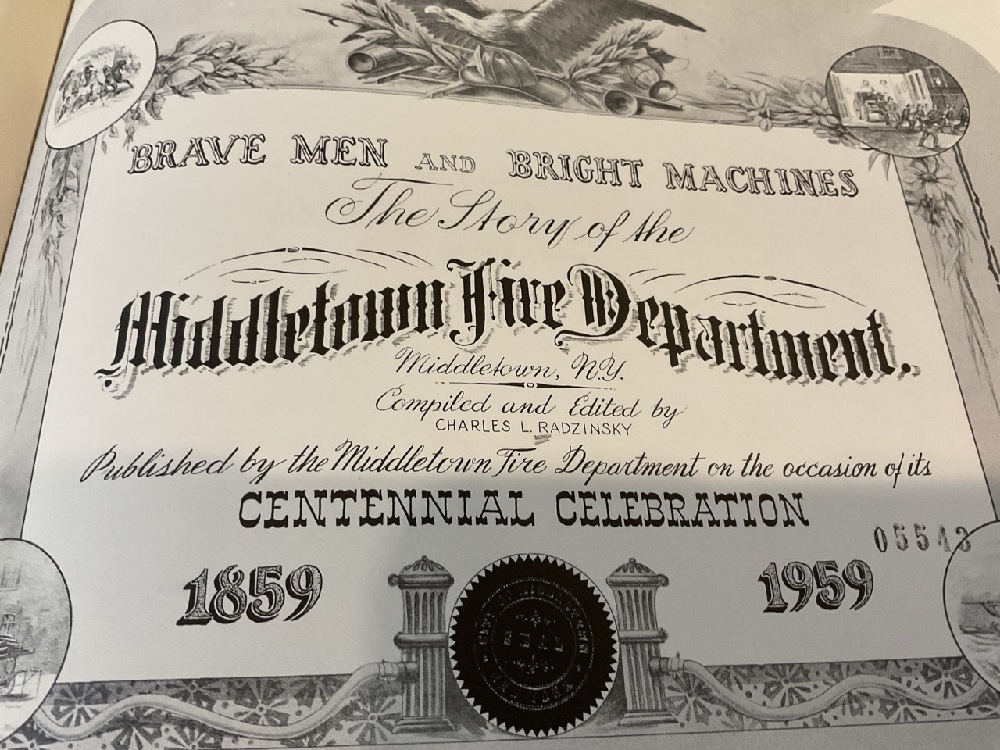 BRAVE MEN AND BRIGHT MACHINES
The Story of the
Middletown Fire Department.
Middletown, N.Y.
Compiled and Edited by
CHARLES L. RADZINSKY
Published by the Middletown Fire Department on the occasion of its
CENTENNIAL CELEBRATION
05543
1859 1959